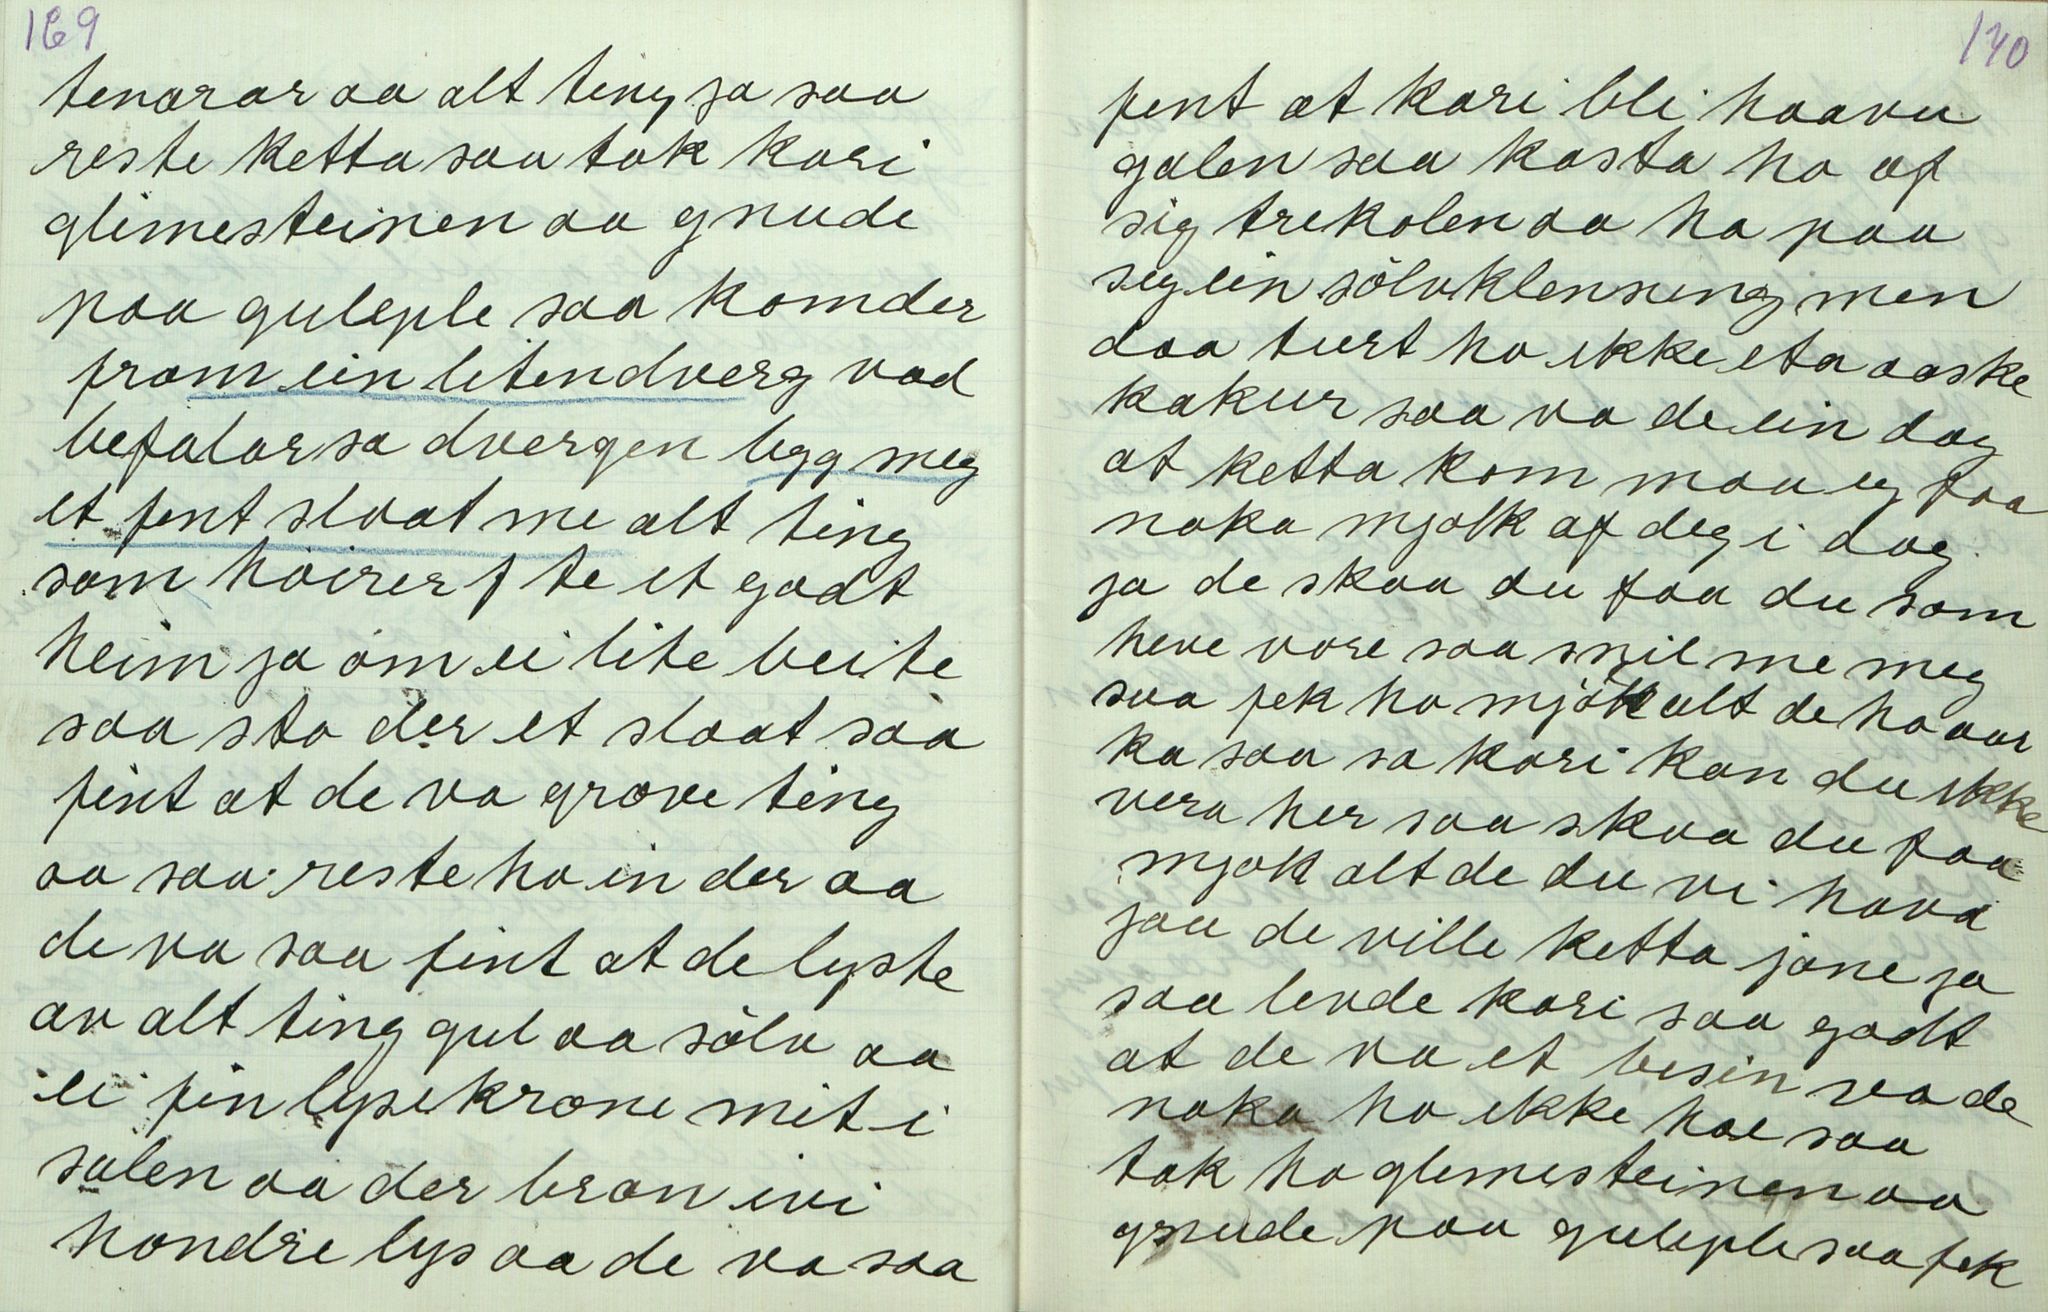 169
tenarar aa alt ting ja saa
reste ketta saa tok kari
glimesteinen aa gnude
paa guleple saa kom der
fram ein liten dverg vad
befalar sa dvergen bygg meg
et fent slaat me alt ting
som höirer f te et godt
heim ja om ei lite beite
saa sto der et slaat saa
fint at de va grove ting
aa saa reste ho in der aa
de va saa fint at de lyste
av alt ting gul aa sölv aa
ei fin lysekrone mit i
salen aa der bran ivi
hondre lys aa de va saa
170
fent at kari bli haavu
galen saa kasta ho af
sig trekolen aa ha paa
seg ein sölvklenning men
daa turt ho ikke eta aaske
kakur saa va de ein dag
at ketta kom maa eg faa
noka mjølk af deg i dag
ja de skaa du faa du som
heve vore saa snil me meg
saa fek ho mjölk alt de ho aar
ka saa sa kari kan du ikke
vera her saa skaa du faa
mjøk alt de du vi hava
jau de ville ketta jane ja
saa levde kari saa godt
at de va et besin va de
noka ho ikke hae saa
tok ho glemesteinen aa
gnude paa guleple saa fek